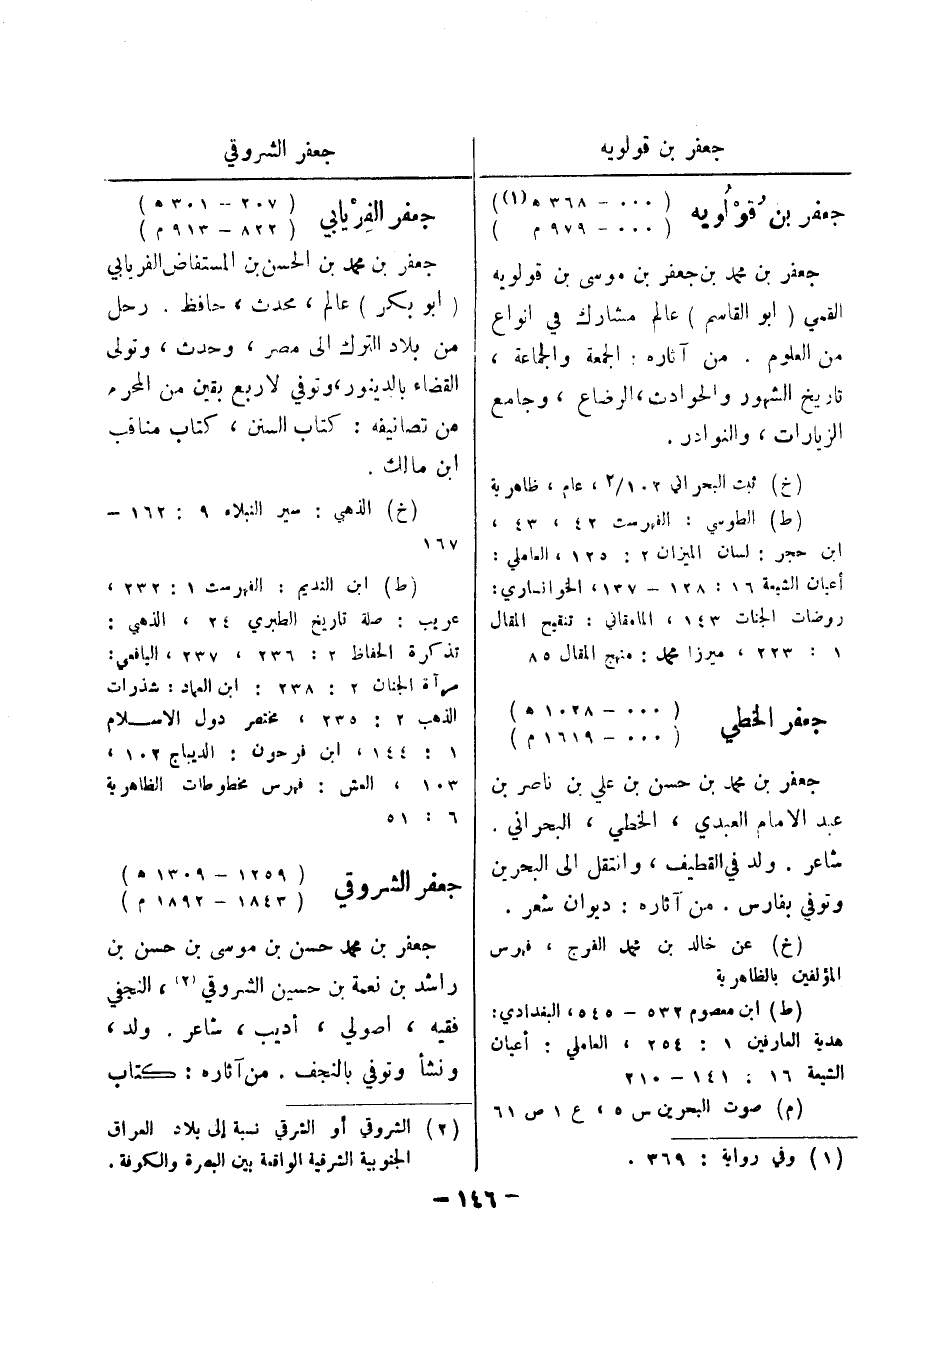 جعفر بن قولويه
جعفر بن قُوْلُويه
( ٠٠٠ - ٣٦٨ ه (١) )
( ٠٠٠ - ٩٧٩ م )
جعفر بن محمد بن جعفر بن موسى بن قولويه
القمي ( ابو القاسم ) عالم مشارك في انواع
من العلوم . من آثاره : الجمعة والجماعة ،
تاريخ الشهور والحوادث ، الرضاع ، وجامع
الزيارات ، والنوادر .
(خ) ثبت البحراني ٢/١٠٢ ، عام ، ظاهرية
(ط) الطوسي : الفهرست ٤٢ ، ٤٣ ،
ابن حجر : لسان الميزان ٢ : ١٢٥ ، العاملي :
أعيان الشيعة ١٦ : ١٢٨ - ١٣٧ ، الخوانساري :
روضات الجنات ١٤٣ ، المامقاني : تنقيح المقال
١ : ٢٢٣ ، ميرزا محمد : منهج المقال ٨٥
جعفر الخطي
( ٠٠٠ - ١٠٢٨ ه )
( ٠٠٠ - ١٦١٩ م )
جعفر بن محمد بن حسن بن علي بن ناصر بن
عبد الامام العبدي ، الخطي ، البحراني .
شاعر . ولد في القطيف ، وانتقل الى البحرين
وتوفي بفارس . من آثاره : ديوان شعر .
(خ) عن خالد بن محمد الفرج ، فهرس
المؤلفين بالظاهرية
(ط) ابن معصوم ٥٣٢ - ٥٤٥ ، البغدادي :
هدية العارفين ١ : ٢٥٤ ، العاملي : أعيان
الشيعة ١٦ : ١٤١ - ٢١٠
(م) صوت البحرين س ٥ ، ع ١ ص ٦١
(١) وفي رواية : ٣٦٩ .
جعفر الشروقي
جعفر الفِرْيابي
( ٢٠٧ - ٣٠١ ه )
( ٨٢٢ - ٩١٣ م )
جعفر بن محمد بن الحسن بن المستفاض الفريابي
( ابو بكر ) عالم ، محدث ، حافظ . رحل
من بلاد الترك الى مصر ، وحدث ، وتولى
القضاء بالدينور ، وتوفي لاربع بقين من المحرم
من تصانيفه : كتاب السنن ، كتاب مناقب
ابن مالك .
(خ) الذهبي : سير النبلاء ٩ : ١٦٢ -
١٦٧
(ط) ابن النديم : الفهرست ١ : ٢٣٢ ،
عريب : صلة تاريخ الطبري ٢٤ ، الذهبي :
تذكرة الحفاظ ٢ : ٢٣٦ ، ٢٣٧ ، اليافعي :
مرآة الجنان ٢ : ٢٣٨ : ابن العماد : شذرات
الذهب ٢ : ٢٣٥ ، مختصر دول الاسلام
١ : ١٤٤ ، ابن فرحون : الديباج ١٠٢ ،
١٠٣ ، العش : فهرس مخطوطات الظاهرية
٦ : ٥١
جعفر الشروقي
( ١٢٥٩ - ١٣٠٩ ه )
( ١٨٤٣ - ١٨٩٢ م )
جعفر بن محمد حسن بن موسى بن حسن بن
راشد بن نعمة بن حسين الشروقي (٢) ، النجفي
فقيه ، اصولي ، أديب ، شاعر . ولد ،
ونشأ وتوفي بالنجف . من آثاره : كتاب
(٢) الشروقي أو الشرقي نسبة إلى بلاد العراق
الجنوبية الشرقية الواقعة بين البصرة والكوفة .
- ١٤٦ -